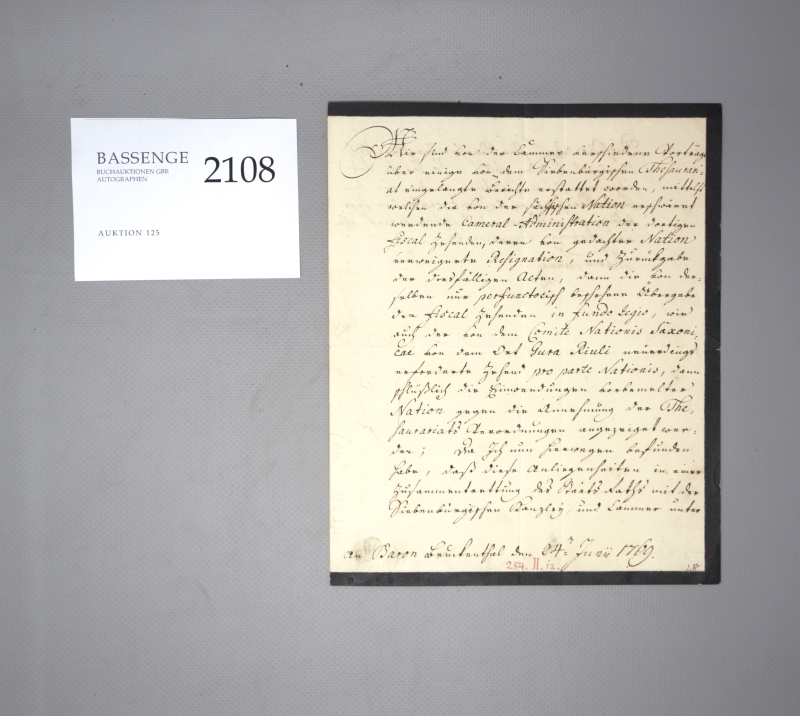 BASSENGE
BUCHAUKTIONEN GBR
AUTOGRAPHEN
2108
AUKTION 125
Mir sind von der Cammer verschiedene Vorträge
über einige von dem Siebenbürgischen Thesaurari-
at eingelangte Berichte erstattet worden, mittelst
welchen die von der Sächsischen Nation erschwärt
werdende Cameral-Administration der dortigen
Fiscal Zehenden, deren von gedachter Nation
verweigerte Resignation, und Zurückgabe
der diesfälligen Acten, dann die von der-
selben nur perfunctorisch beschehene Übergabe
der Fiscal Zehenden in Fundo Regio, wie
auch der von dem Comite Nationis Saxoni-
cae von dem Ort Gura Riuli neuerdings
erforderte Zehend pro parte Nationis, dann
schlüßlich die Einwendungen vorbemelter
Nation gegen die Annehmung der The-
saurariats Verordnungen angezeiget wer-
den; Da Ich nun hierwegen befunden
habe, daß diese Anliegenheiten in einer
Zusammentrettung des Staats Raths mit der
Siebenbürgischen Kanzley und Cammer unter
An Baron Bruckenthal den 24ten Junii 1769.
254. II. 12.